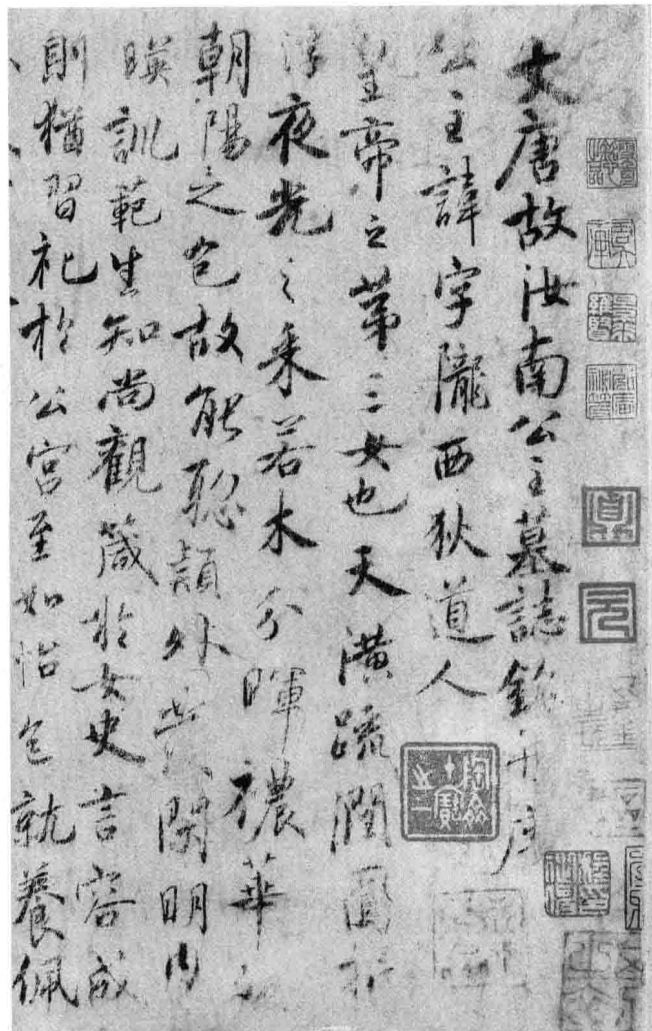 大唐故汝南公主墓誌銘并序
公主諱字隴西狄道人
皇帝之第三女也天潢疏潤圓折
浮夜光之采若木分暉襛華
朝陽之色故能聡頴外發閑明内
暎訓範生知尚觀箴於女史言容成
則猶習祀於公宮至如怡色就養佩